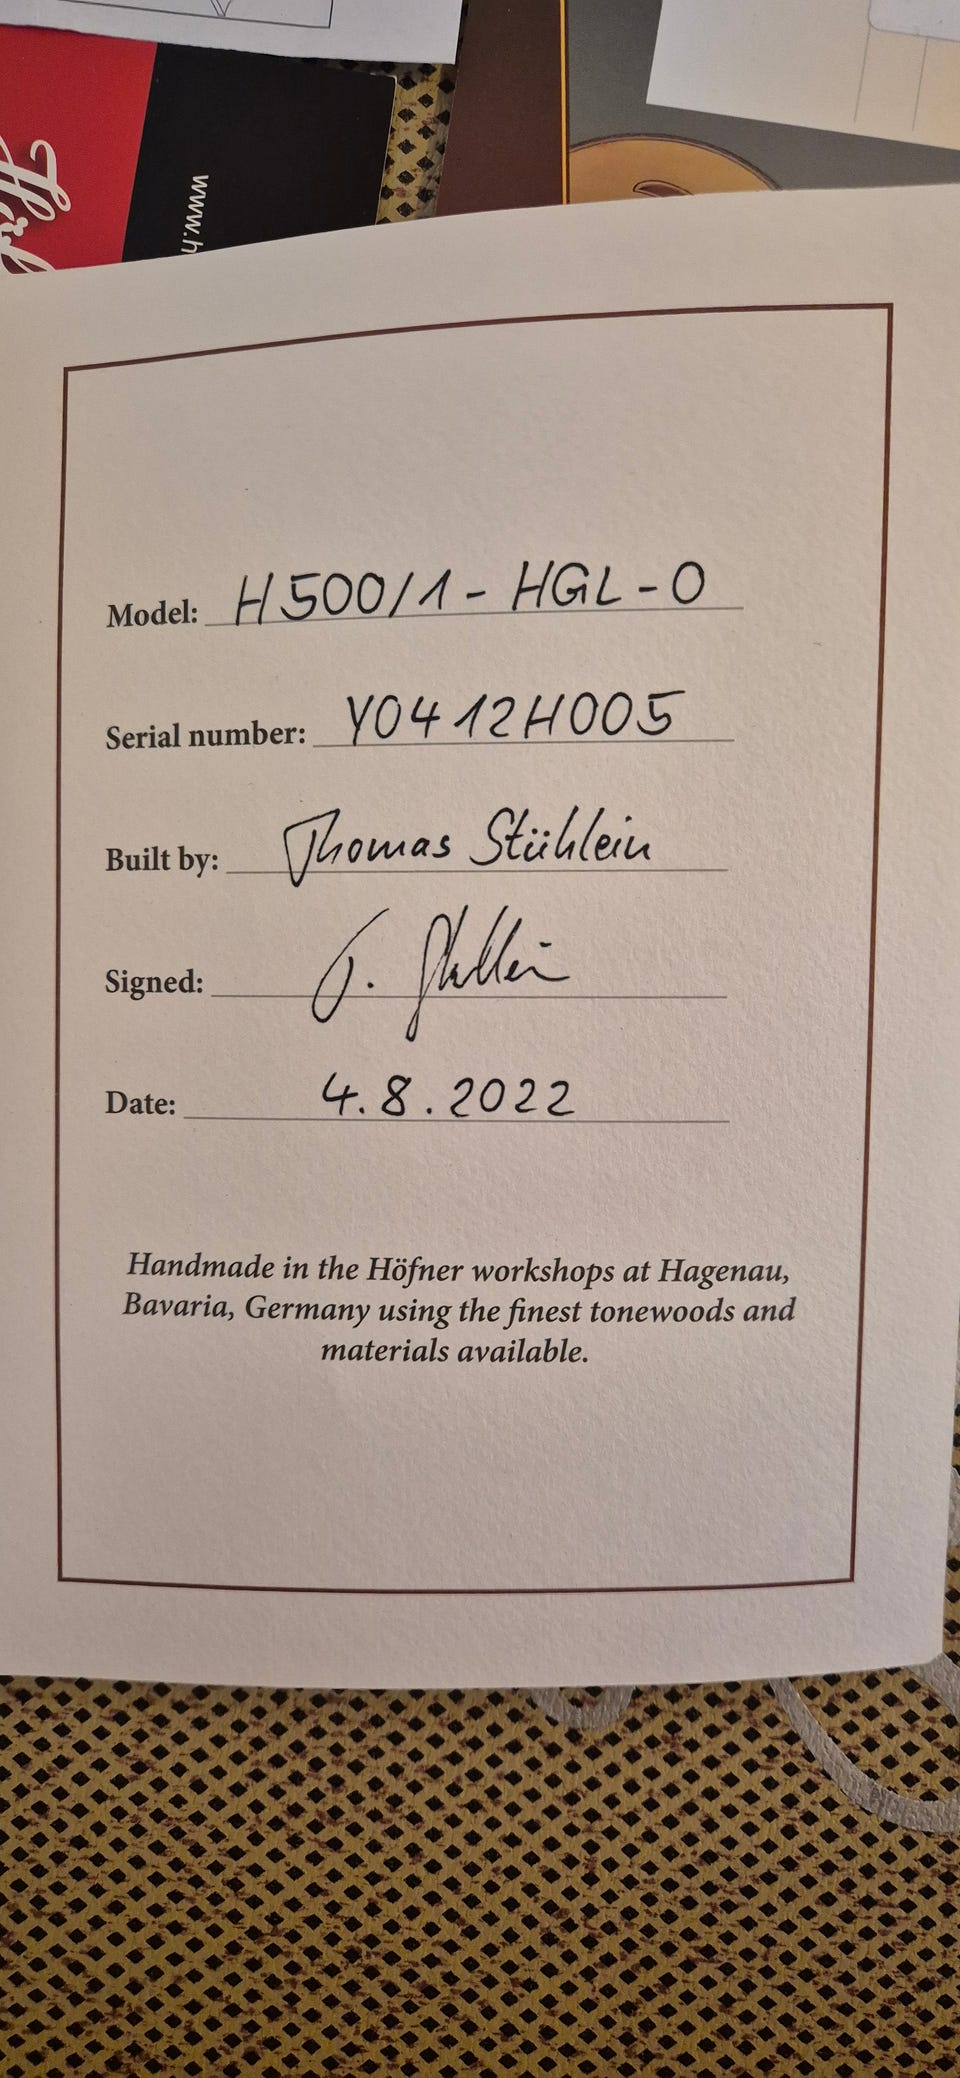 www.h
Model: H500/1-HGL-0
Serial number: Y0412H005
Built by: Thomas Stühlein
Signed: T. Stühlein
Date: 4.8.2022
Handmade in the Höfner workshops at Hagenau,
Bavaria, Germany using the finest tonewoods and
materials available.